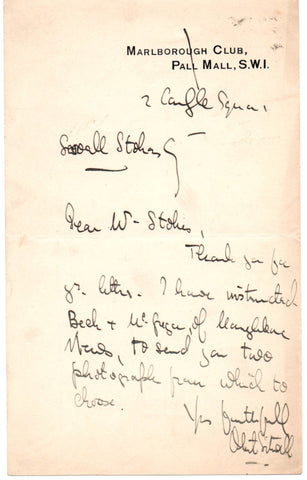 MARLBOROUGH CLUB,
PALL MALL, S.W.1.
2 Carlyle Square,
Sewell Stokes
Dear Mr Stokes,
Thank you for
yr. letter. I have instructed
Beck & McGregor, of Marylebone
Mews, to send you two
photographs from which to
choose.
Yrs faithfully
Osbert Sitwell